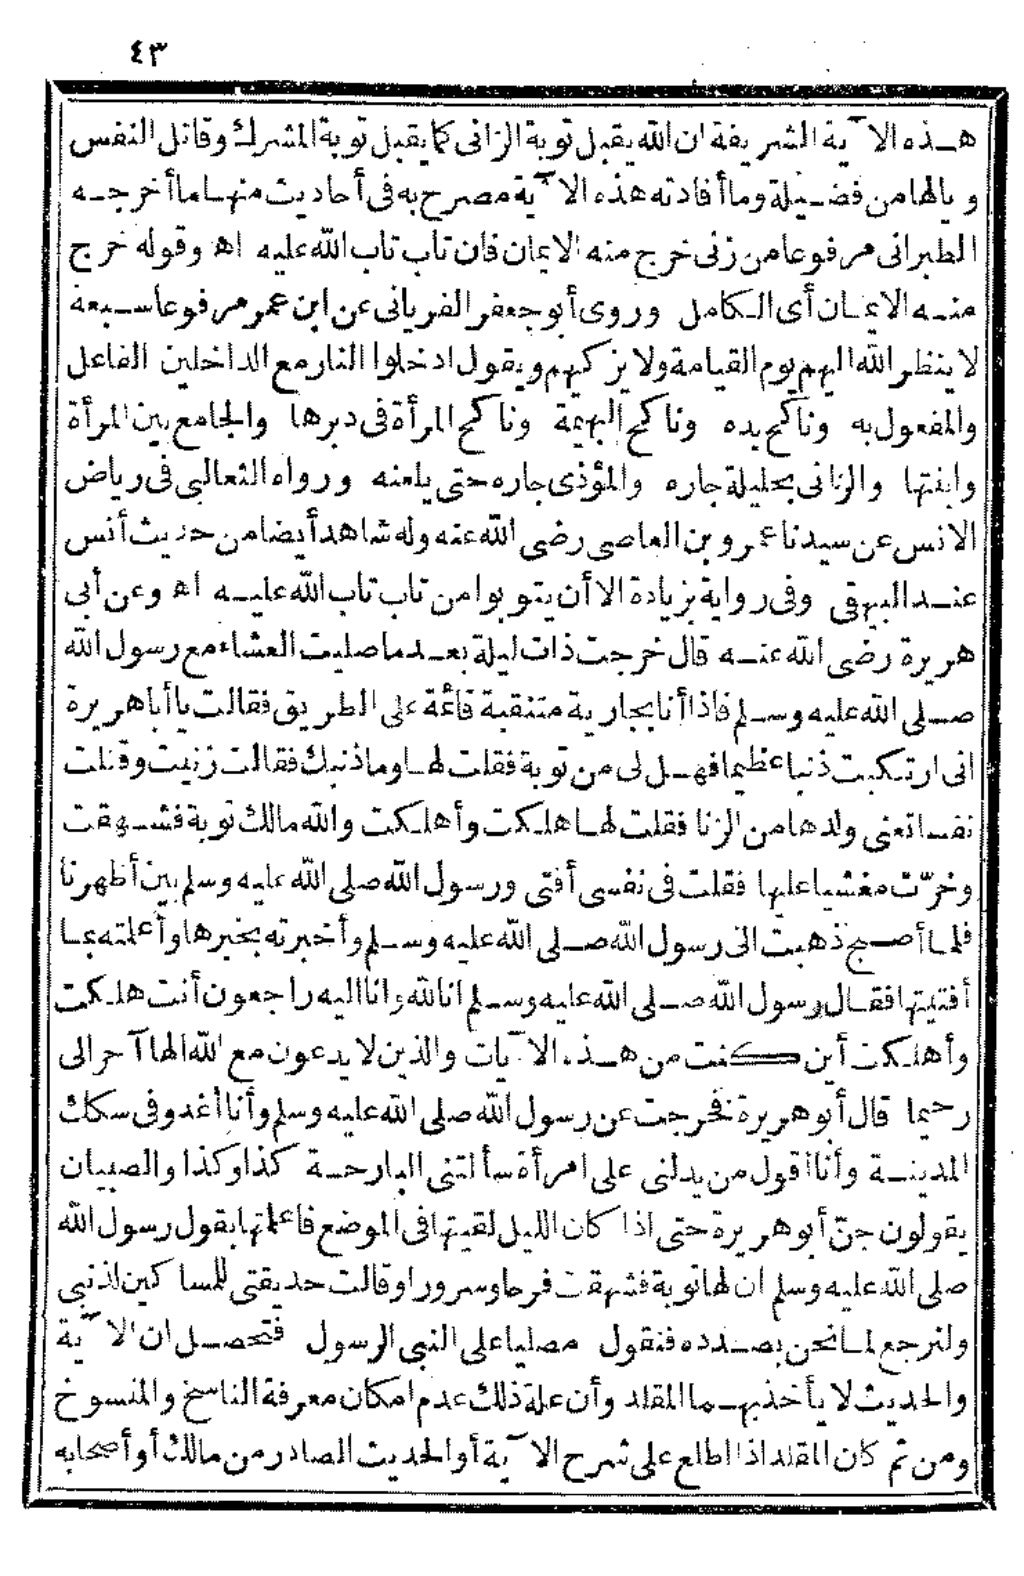 ٤٣
هذه الآية الشريفة ان الله يقبل توبة الزانى كما يقبل توبة المشرك وقاتل النفس
ويالها من فضيلة وما أفادته هذه الآية مصرح به فى أحاديث منها ما أخرجه
الطبرانى مرفوعا من زنى خرج منه الايمان فان تاب تاب الله عليه اه وقوله خرج
منه الايمان أى الكامل وروى أبو جعفر الفريانى عن ابن عمر مرفوعا سبعة
لا ينظر الله اليهم يوم القيامة ولا يزكيهم ويقول ادخلوا النار مع الداخلين الفاعل
والمفعول به وناكح يده وناكح البهيمة وناكح المرأة فى دبرها والجامع بين المرأة
وابنتها والزانى بحليلة جاره والمؤذى جاره حتى يلعنه ورواه الثعالبى فى رياض
الانس عن سيدنا عمرو بن العاصى رضى الله عنه وله شاهد أيضا من حديث أنس
عند البيهقى وفى رواية بزيادة الا أن يتوبوا من تاب تاب الله عليه اه وعن أبى
هريرة رضى الله عنه قال خرجت ذات ليلة بعد ما صليت العشاء مع رسول الله
صلى الله عليه وسلم فاذا أنا بجارية متنقبة قائمة على الطريق فقالت يا أبا هريرة
انى ارتكبت ذنبا عظيما فهل لى من توبة فقلت لها وما ذنبك فقالت زنيت وقتلت
نفسا تعنى ولدها من الزنا فقلت لها هلكت وأهلكت والله مالك توبة فشهقت
وخرّت مغشيا عليها فقلت فى نفسى أفتى ورسول الله صلى الله عليه وسلم بين أظهرنا
فلما أصبح ذهبت الى رسول الله صلى الله عليه وسلم وأخبرته بخبرها وأعلمته بما
أفتيتها فقال رسول الله صلى الله عليه وسلم انا لله وانا اليه راجعون أنت هلكت
وأهلكت أين كنت من هذه الآيات والذين لا يدعون مع الله الها آخر الى
رحيما قال أبو هريرة فخرجت عن رسول الله صلى الله عليه وسلم وأنا أغدو فى سكك
المدينة وأنا أقول من يدلنى على امرأة سألتنى البارحة كذا وكذا والصبيان
يقولون جنّ أبو هريرة حتى اذا كان الليل لقيتها فى الموضع فاعلمتها بقول رسول الله
صلى الله عليه وسلم ان لها توبة فشهقت فرحا وسرورا وقالت حديقتى للمساكين لذنبى
ولنرجع لما نحن بصدده فنقول مصليا على النبى الرسول فتحصل ان الآية
والحديث لا يأخذ بهما المقلد وأن علة ذلك عدم امكان معرفة الناسخ والمنسوخ
ومن ثم كان المقلد اذا اطلع على شرح الآية أو الحديث الصادر من مالك أو أصحابه